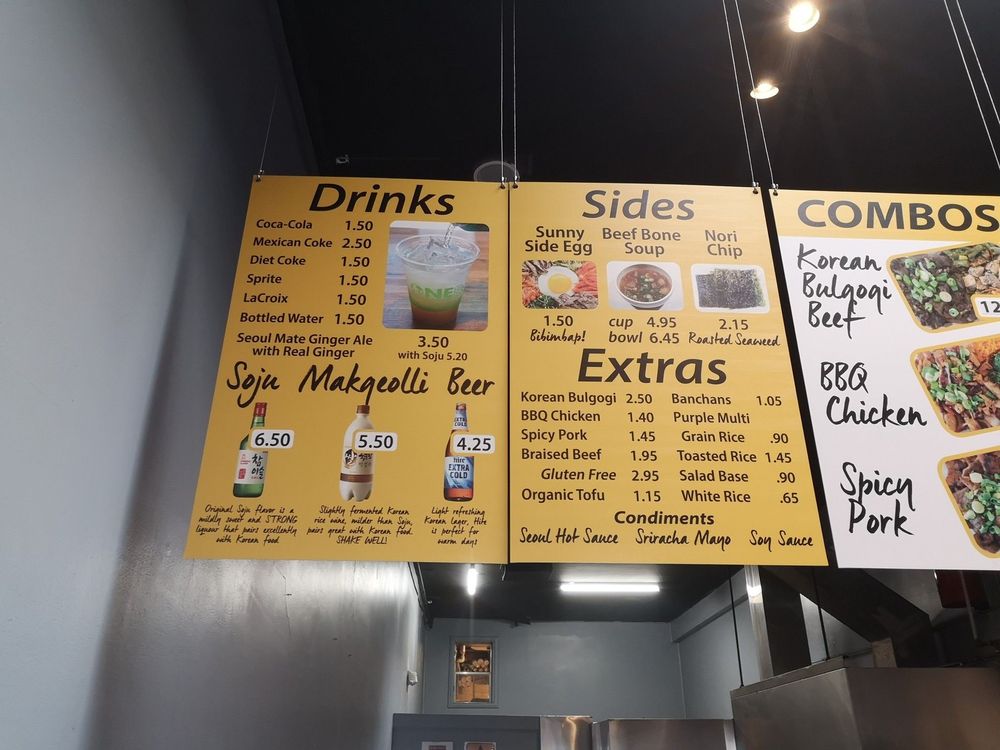 Drinks
Coca-Cola 1.50
Mexican Coke 2.50
Diet Coke 1.50
Sprite 1.50
LaCroix 1.50
Bottled Water 1.50
Seoul Mate Ginger Ale 3.50
with Real Ginger with Soju 5.20
Soju Makgeolli Beer
6.50 5.50 4.25
참이슬
hite
EXTRA
COLD
Original Soju flavor is a
mildly sweet and STRONG
liquour that pairs excellently
with Korean food
Slightly fermented Korean
rice wine, milder than Soju,
pairs great with Korean food.
SHAKE WELL!
Light refreshing
Korean lager, Hite
is perfect for
warm days
Sides
Sunny
Side Egg
1.50
Bibimbap!
Beef Bone
Soup
cup 4.95
bowl 6.45
Nori
Chip
2.15
Roasted Seaweed
Extras
Korean Bulgogi 2.50
BBQ Chicken 1.40
Spicy Pork 1.45
Braised Beef 1.95
Gluten Free 2.95
Organic Tofu 1.15
Banchans 1.05
Purple Multi
Grain Rice .90
Toasted Rice 1.45
Salad Base .90
White Rice .65
Condiments
Seoul Hot Sauce Sriracha Mayo Soy Sauce
COMBOS
Korean
Bulgogi
Beef
12
BBQ
Chicken
Spicy
Pork